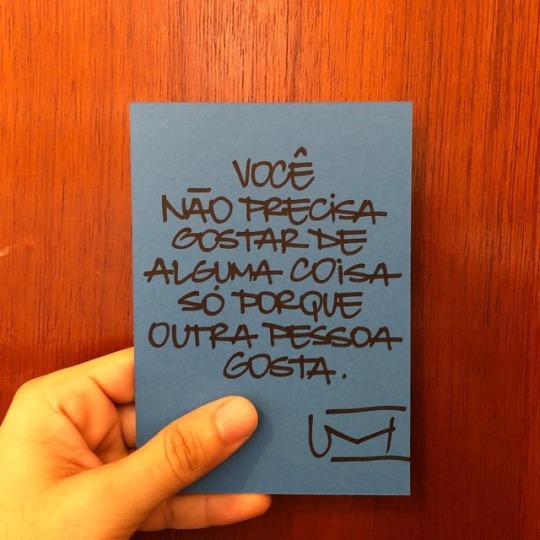 VOCÊ
NÃO PRECISA
GOSTAR DE
ALGUMA COISA
SÓ PORQUE
OUTRA PESSOA
GOSTA.